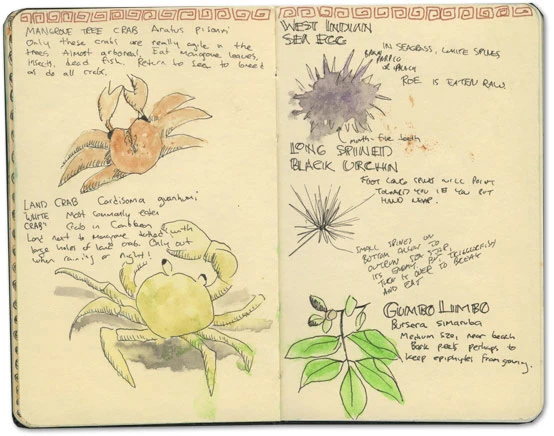 MANGROVE TREE CRAB Aratus pisonii
Only these crabs are really agile in the
trees. Almost arboreal. Eat mangrove leaves,
insects, dead fish. Return to sea to breed
as do all crabs.
LAND CRAB Cardisoma guanhumi
WHITE Most commonly eaten
CRAB Crab in Caribbean
Land next to mangrove with
large holes of land crab. Only out
when raining or night!
WEST INDIAN
SEA EGG
IN SEAGRASS, WHITE SPINES
ROE IS EATEN RAW.
mouth - five teeth
LONG SPINED
BLACK URCHIN
FOOT LONG SPINES WILL POINT
TOWARD YOU IF YOU PUT
HAND NEAR.
SMALL SPINES ON
BOTTOM ALLOW TO
OUTRUN SEA STAR,
ITS ENEMY, BUT TRIGGERFISH
TURN IT OVER TO BREAK
AND EAT
GUMBO LIMBO
Bursera simaruba
Medium size, near beach
Bark peels perhaps to
keep epiphytes from growing.